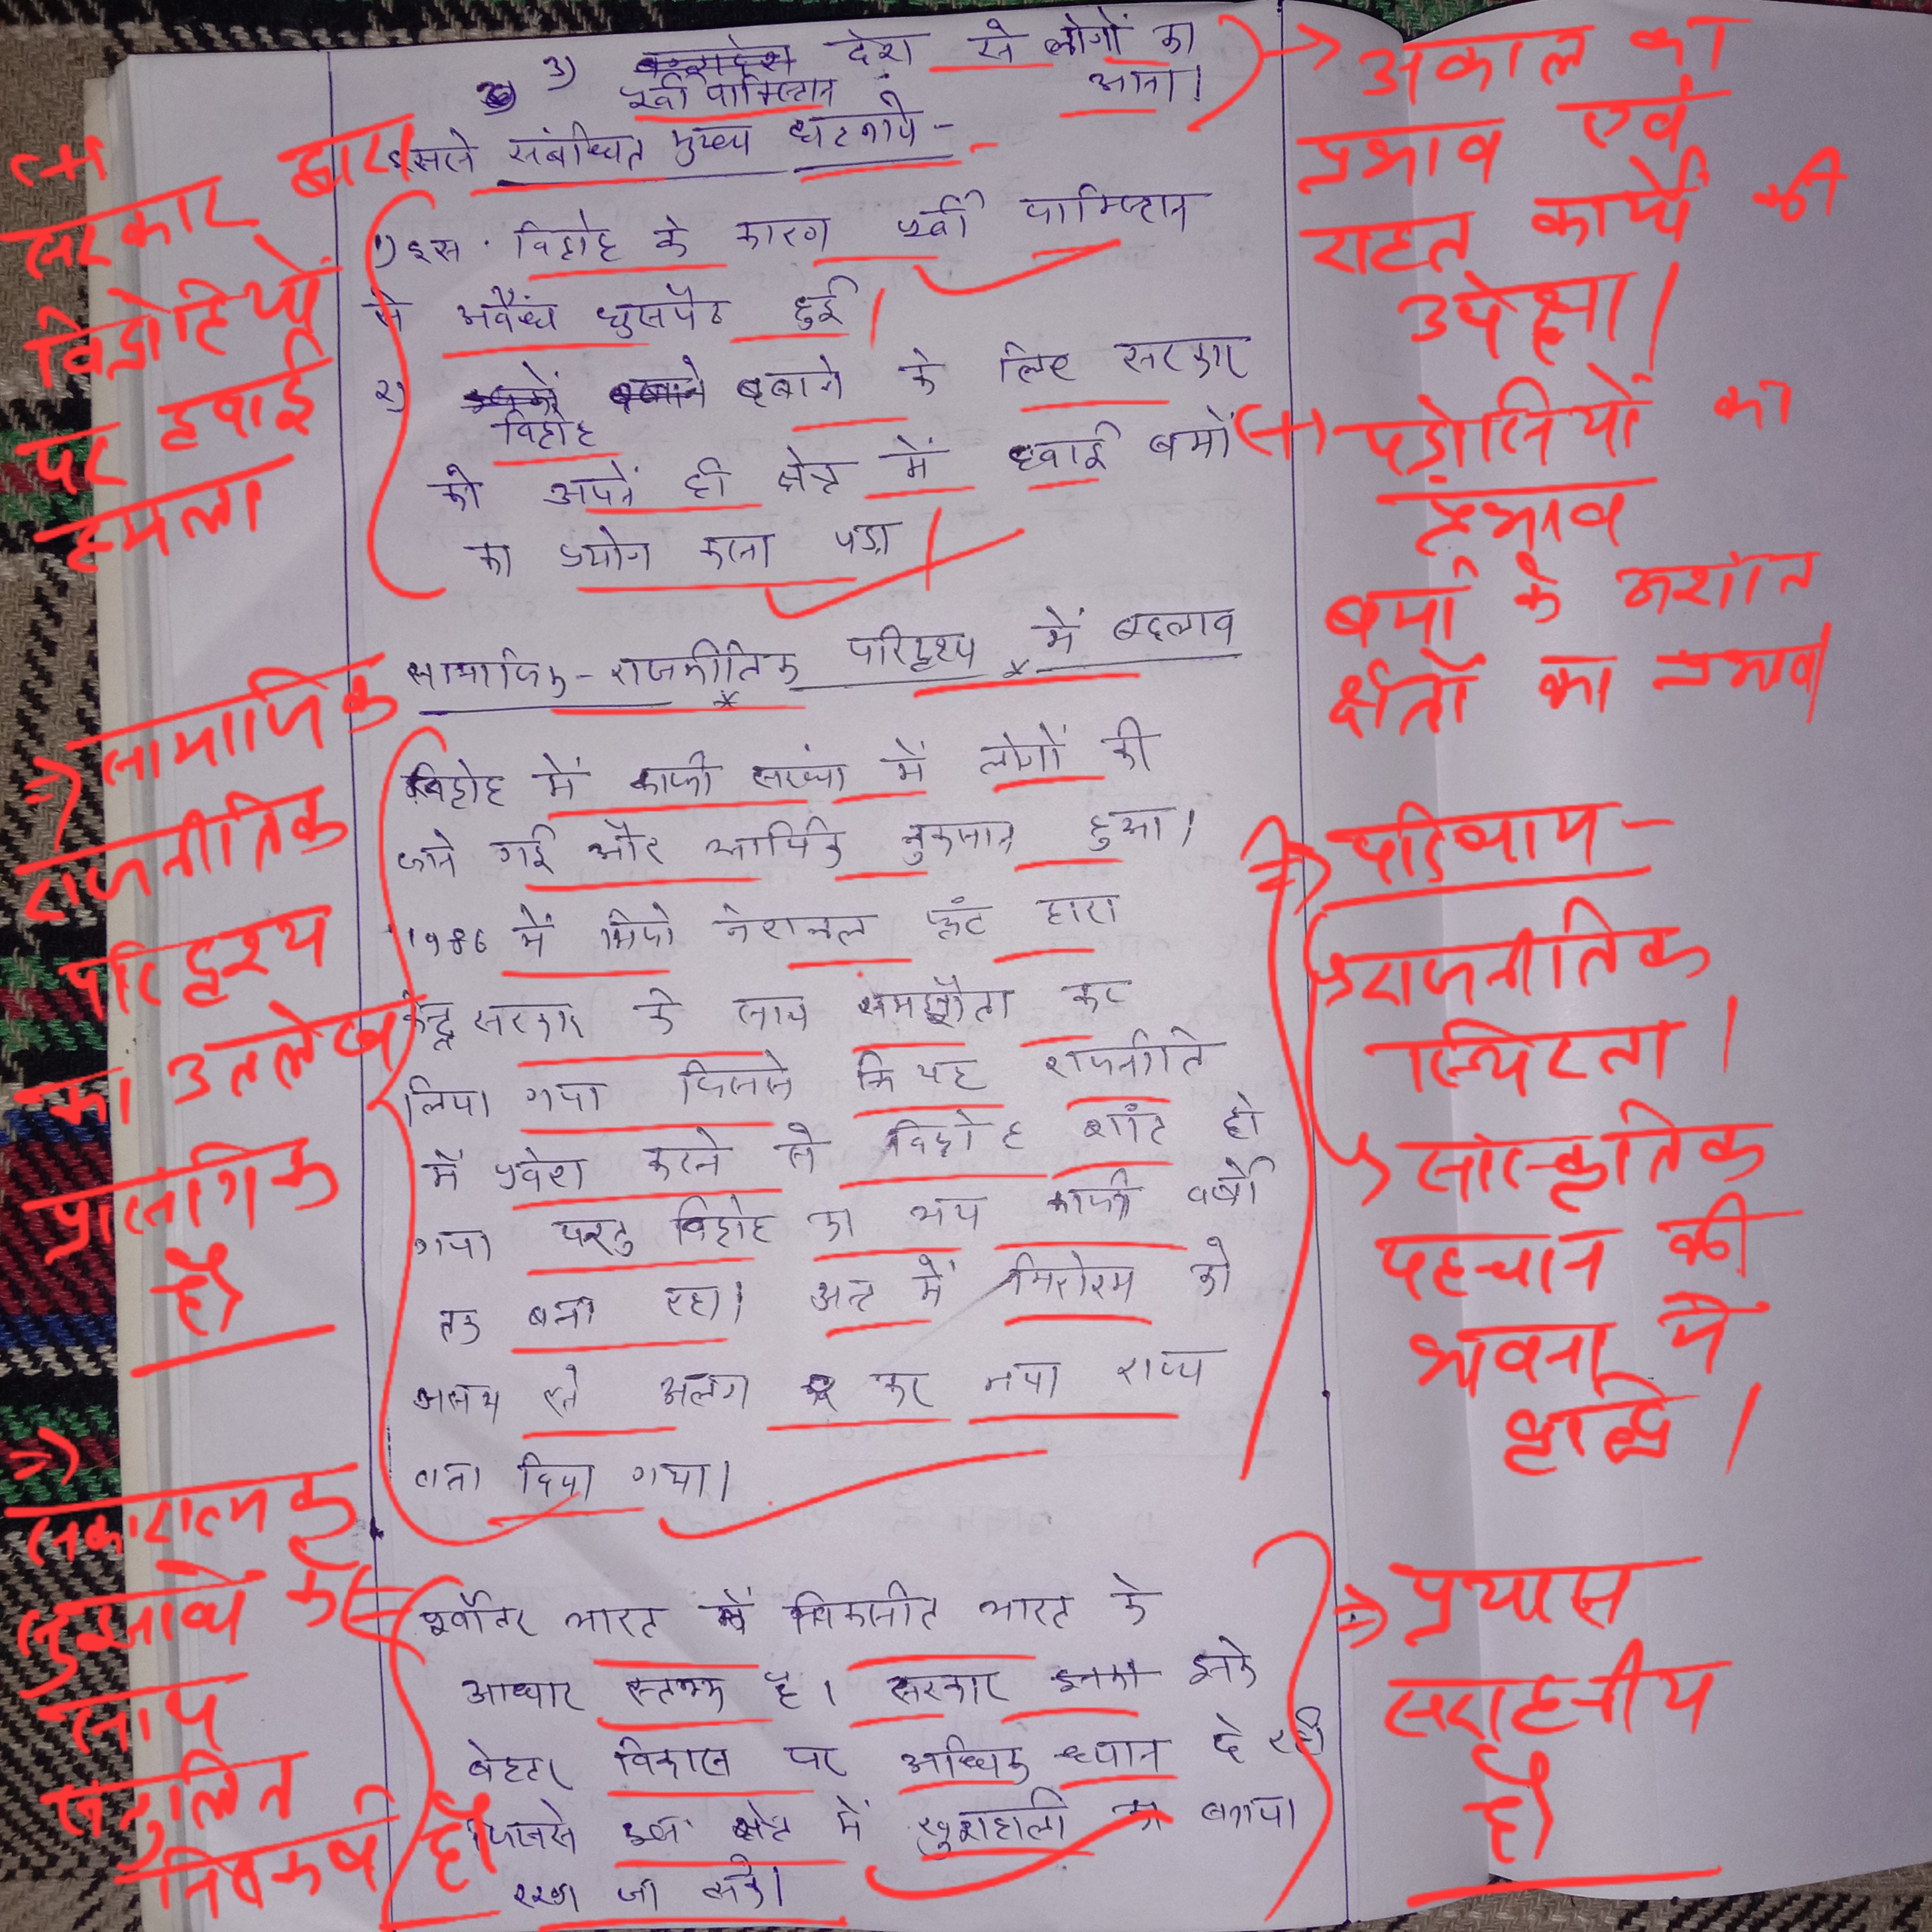 3) देश से लोगों का
पूर्वी पाकिस्तान आना।
इससे संबंधित मुख्य घटनाये -
1) इस विद्रोह के कारण पूर्वी पाकिस्तान
से अवैध घुसपैठ हुई।
2) विद्रोह दबाने के लिए सरकार
को अपने ही क्षेत्र में हवाई बमों
का प्रयोग करना पड़ा
सामाजिक - राजनीतिक परिदृश्य में बदलाव
विद्रोह में काफी संख्या में लोगों की
जाने गई और आर्थिक नुकसान हुआ।
1986 में मिजो नेशनल फ्रंट द्वारा
केन्द्र सरकार के साथ समझौता कर
लिया गया जिससे कि यह राजनीति
में प्रवेश करने से विद्रोह शांत हो
गया परन्तु विद्रोह का भय काफी वर्षो
तक बना रहा। अन्त में मिजोरम को
असम से अलग कर नया राज्य
बना दिया गया।
पूर्वोत्तर भारत विकसीत भारत के
आधार स्तम्भ है। सरकार इनके
बेहतर विकास पर अधिक ध्यान दे रही
जिससे इस क्षेत्र में खुशहाली बनाया
रखा जा सके।
सरकार द्वारा
विद्रोहियों
पर हवाई
हमला
⇒ सामाजिक
राजनीतिक
परिदृश्य
का उल्लेख
प्रासंगिक
है।
⇒
सकारात्मक
सुझावों के
साथ
सन्तुलित
निष्कर्ष है।
→ अकाल का
प्रभाव एवं
राहत कार्यों की
उपेक्षा।
(+) पड़ोसियों का
प्रभाव
बर्मा के अशांत
क्षेत्रों का प्रभाव।
⇒ परिणाम -
राजनीतिक
स्थिरता।
सांस्कृतिक
पहचान की
भावना में
वृद्धि।
⇒ प्रयास
सराहनीय
है।